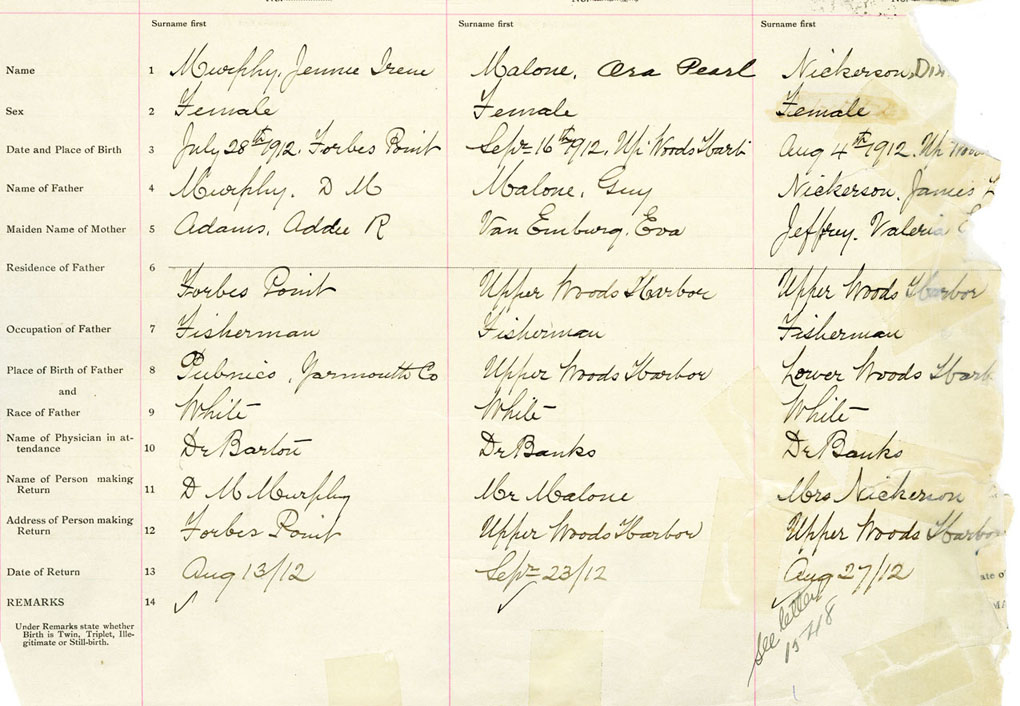 Surname first Surname first Surname first
Name 1 Murphy, Jennie Irene Malone, Ora Pearl Nickerson, Di
Sex 2 Female Female Female
Date and Place of Birth 3 July 28th 1912. Forbes Point Sept 16th 1912. Up Woods Harb Aug 4th 1912. Up Woo
Name of Father 4 Murphy. D M Malone, Guy Nickerson, James
Maiden Name of Mother 5 Adams, Addie R Van Emburg, Eva Jeffrey. Valeria
Residence of Father 6 Forbes Point Upper Woods Harbor Upper Woods Harbor
Occupation of Father 7 Fisherman Fisherman Fisherman
Place of Birth of Father 8 Pubnico, Yarmouth Co Upper Woods Harbor Lower Woods Harb
and
Race of Father 9 White White White
Name of Physician in at-
tendance 10 Dr Barton Dr Banks Dr Banks
Name of Person making
Return 11 D M Murphy Mr Malone Mrs Nickerson
Address of Person making
Return 12 Forbes Point Upper Woods Harbor Upper Woods Harbor
Date of Return 13 Aug 13/12 Sept 23/12 Aug 27/12
ate o
REMARKS 14
MA
Under Remarks state whether
Birth is Twin, Triplet, Ille-
gitimate or Still-birth.
See letter